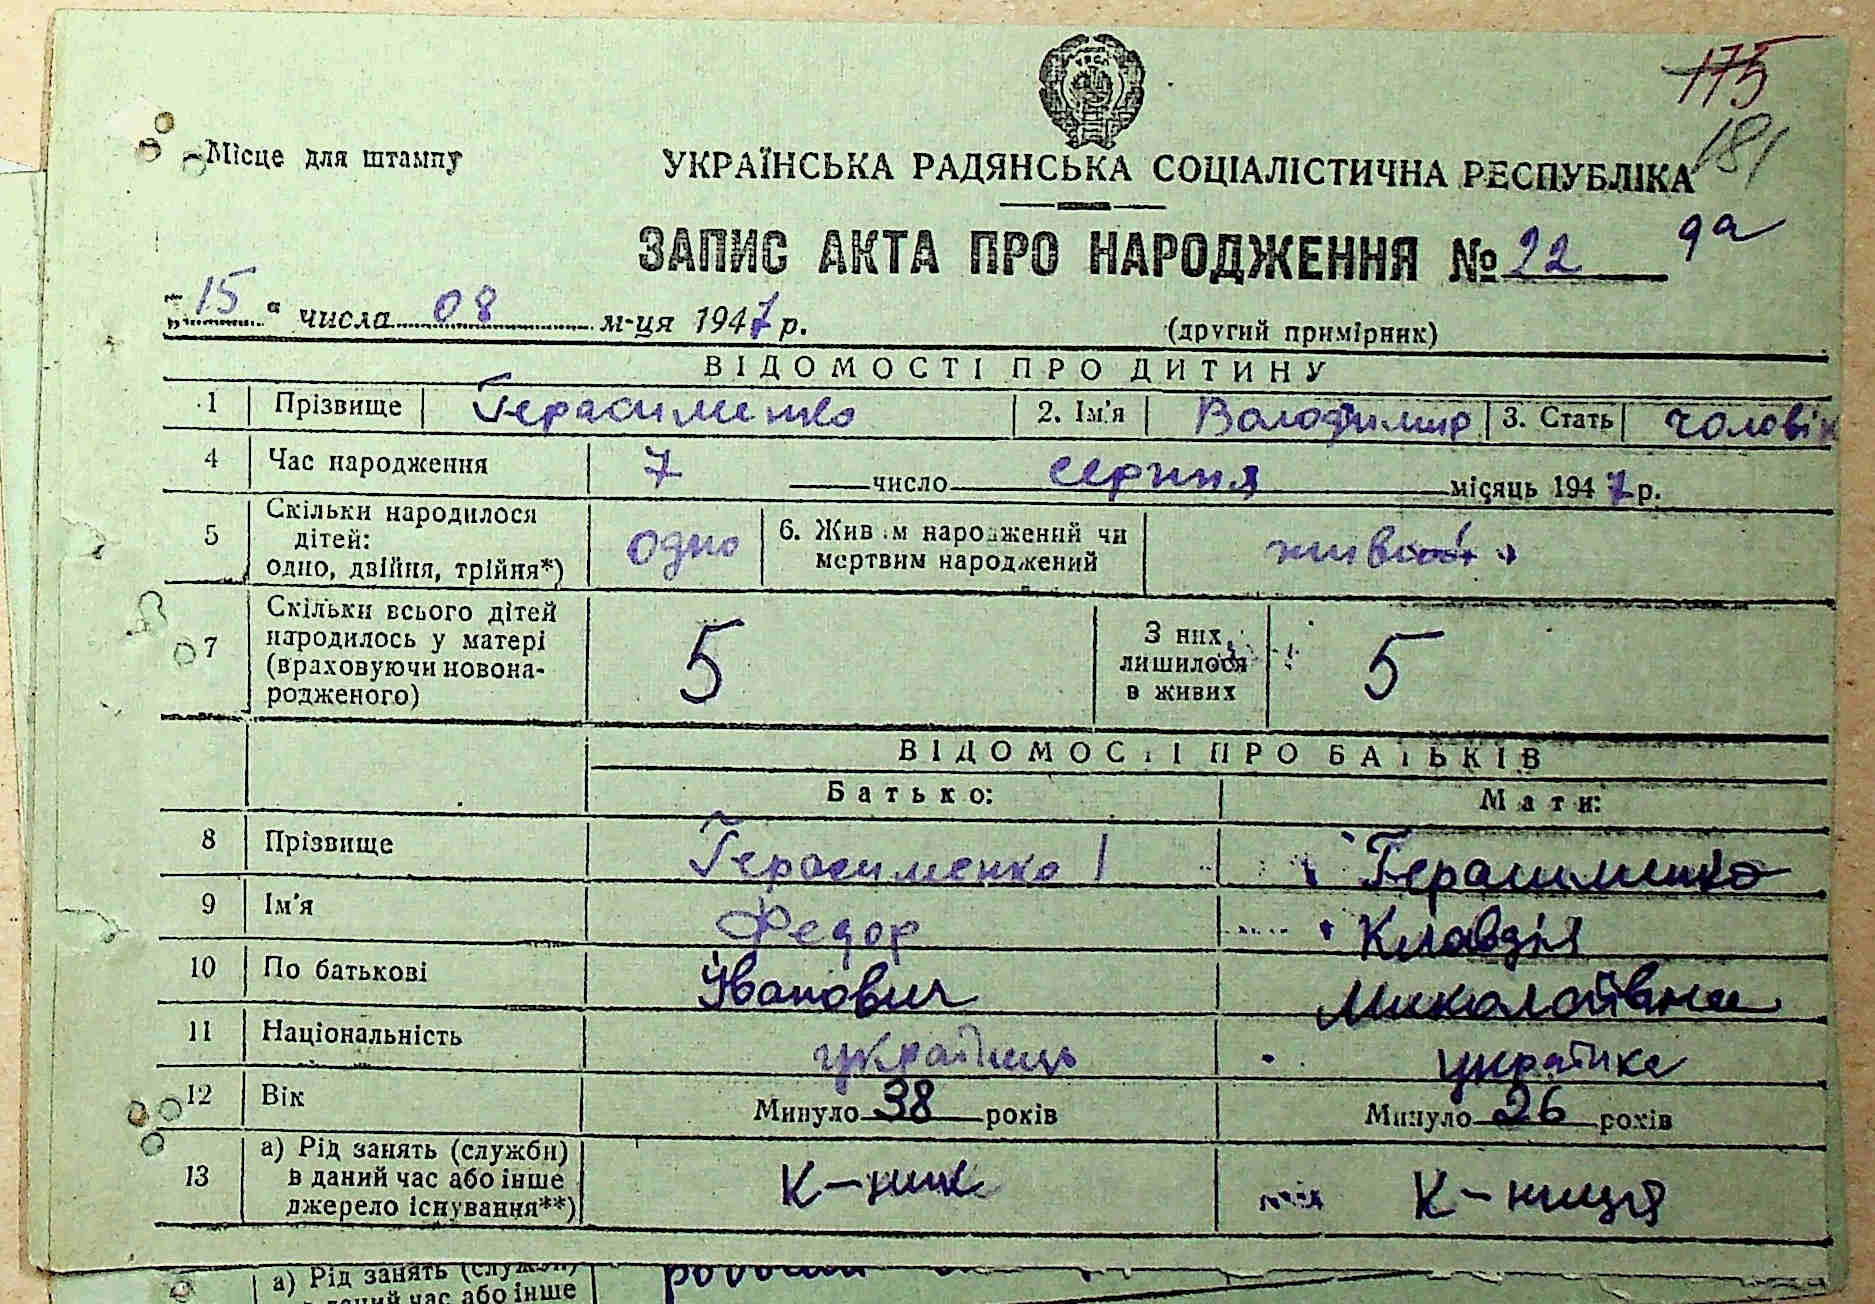 175
181
Місце для штампу
УКРАЇНСЬКА РАДЯНСЬКА СОЦІАЛІСТИЧНА РЕСПУБЛІКА
ЗАПИС АКТА ПРО НАРОДЖЕННЯ № 22
„15" числа 08 м-ця 1947 р.
(другий примірник)
ВІДОМОСТІ ПРО ДИТИНУ
1 Прізвище Герасименко 2. Ім'я Володимир 3. Стать чоловік
4 Час народження 7 число серпня місяць 1947 р.
5 Скільки народилося дітей: одно, двійня, трійня*) одно 6. Живим народжений чи мертвим народжений живий
7 Скільки всього дітей народилось у матері (враховуючи новонародженого) 5 З них лишилося в живих 5
ВІДОМОСТІ ПРО БАТЬКІВ
Батько: Мати:
8 Прізвище Герасименко Герасименко
9 Ім'я Федор Клавдія
10 По батькові Іванович Миколаївна
11 Національність українець українка
12 Вік Минуло 38 років Минуло 26 років
13 а) Рід занять (служби) в даний час або інше джерело існування**) К-ник К-ниця
а) Рід занять (служби)
в даний час або інше